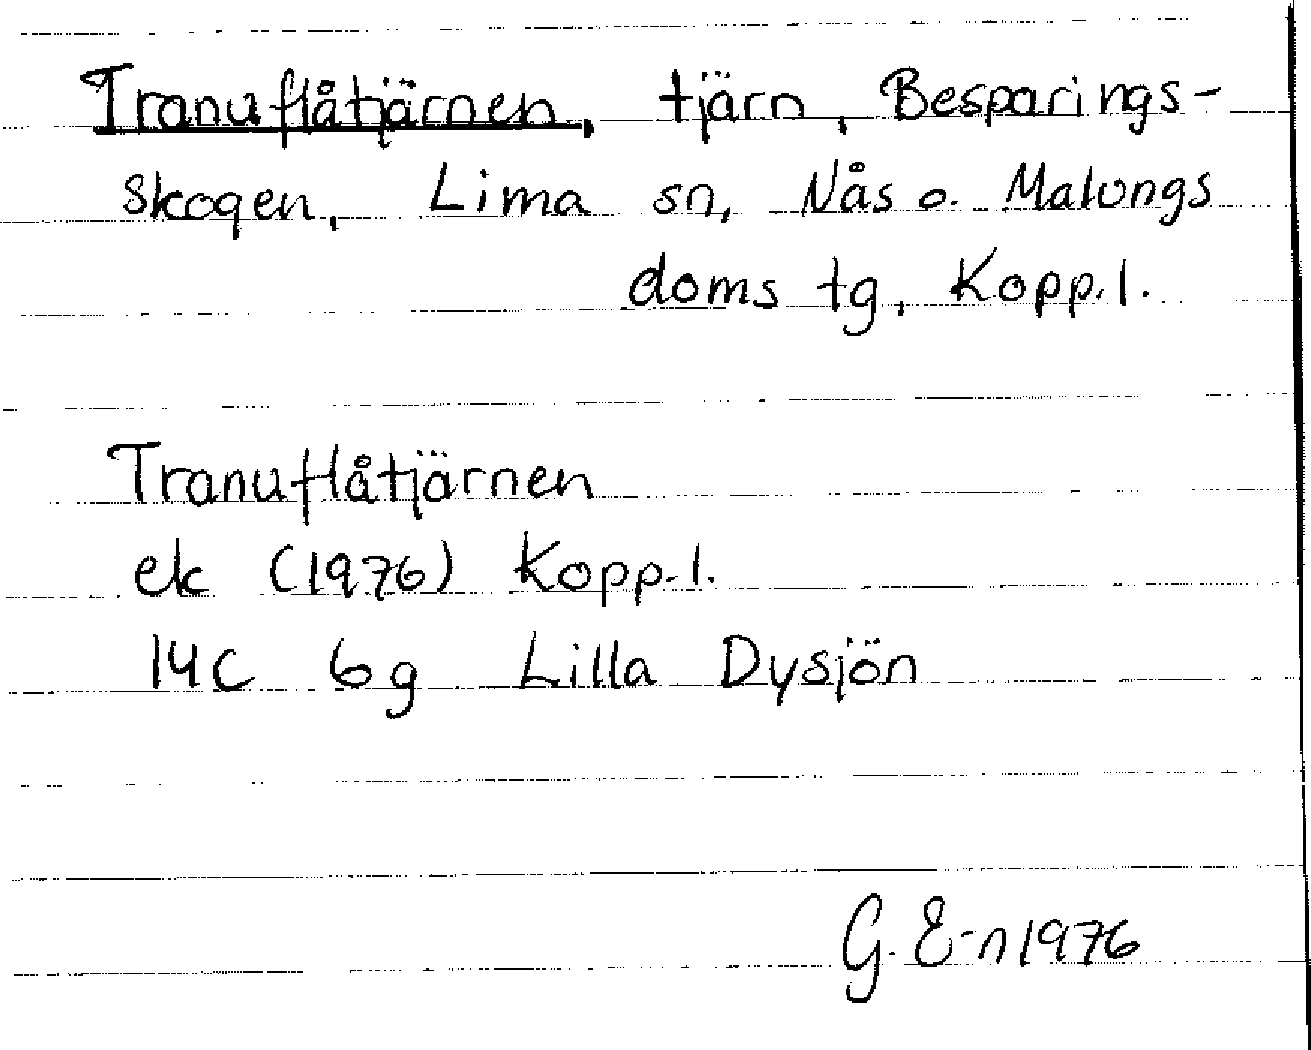 Tranuflåtjärnen, tjärn, Besparings-
skogen, Lima sn, Nås o. Malungs
doms tg, Kopp.l.
Tranuflåtjärnen
ek (1976) Kopp.l.
14C 6g Lilla Dysjön
G. E-n 1976